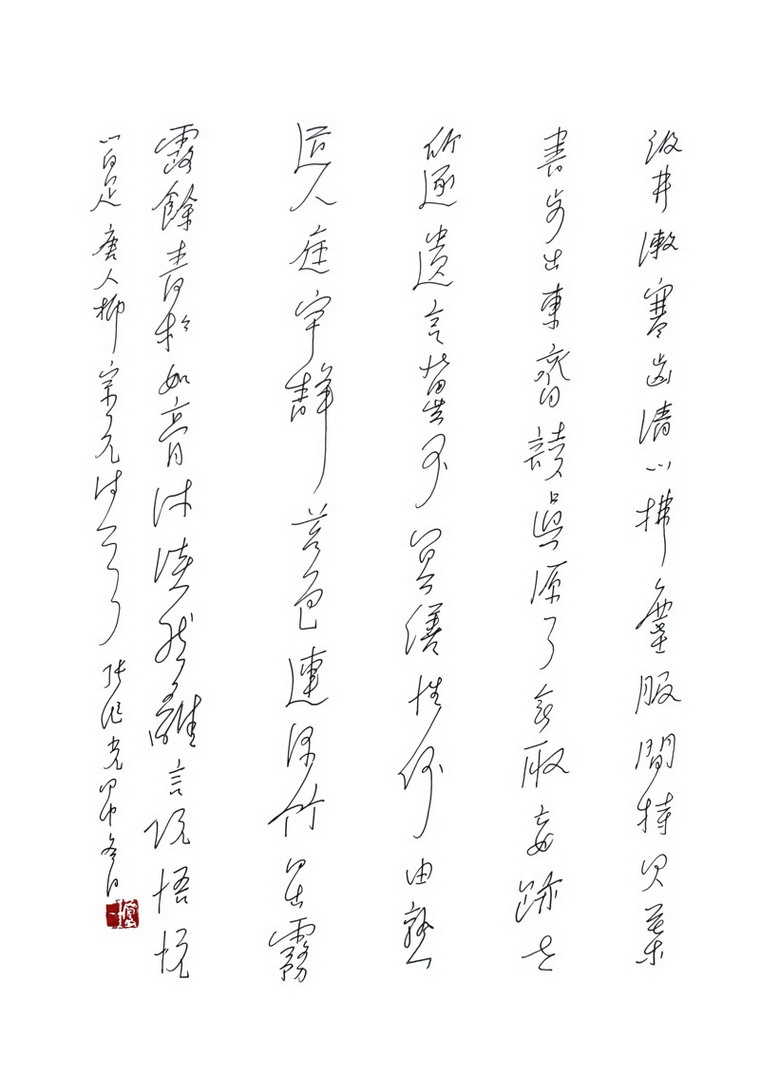 汲井漱寒齒清心拂塵服閒持貝葉
書步出東齋讀眞源了無取妄跡世
所逐遺言冀可冥繕性何由熟
道人庭宇靜苔色連深竹日出霧
露餘青松如膏沐澹然離言說悟悅
心自足 唐人柳宗元詩 冬日